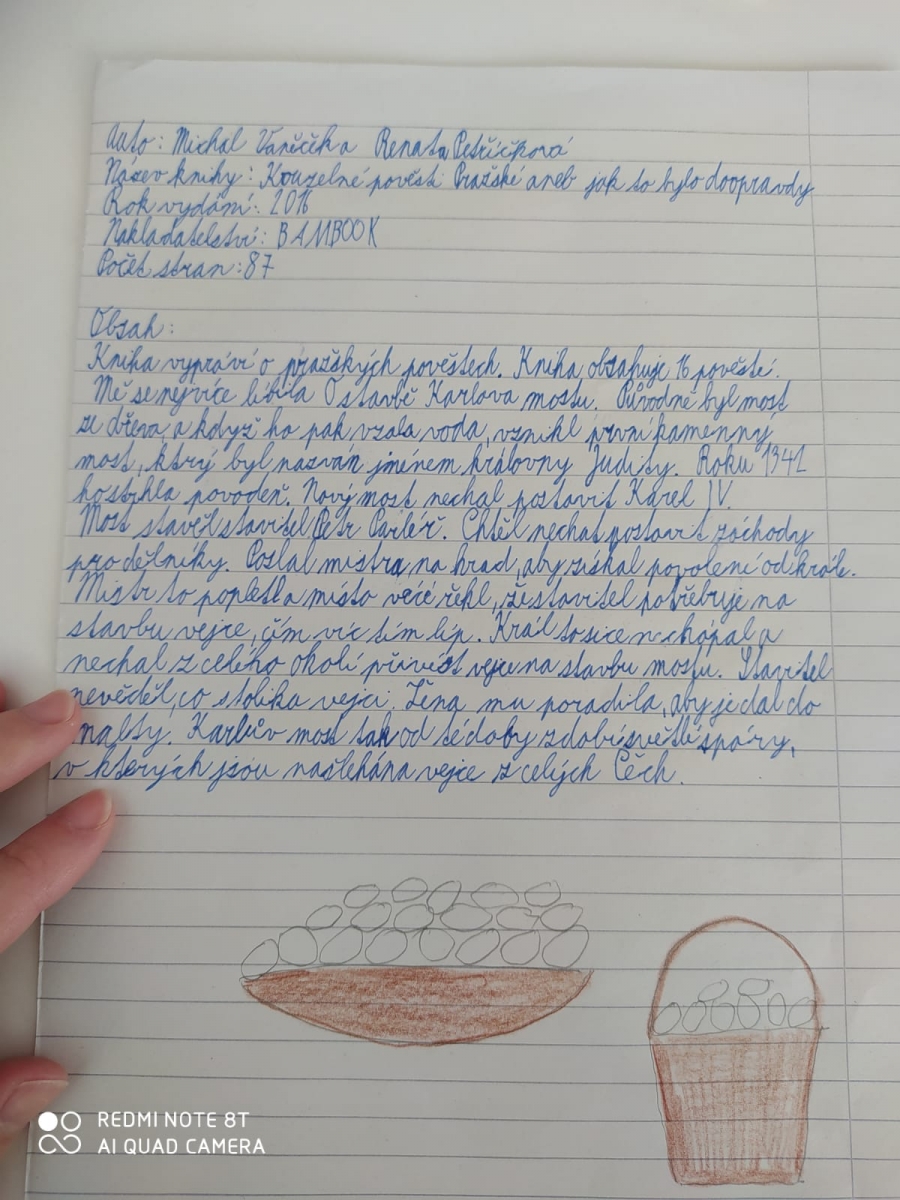 Auto: Michal Vaněček a Renata Petříčková
Název knihy: Kouzelné pověsti Pražské aneb jak to bylo doopravdy
Rok vydání: 2016
Nakladatelství: BAMBOOK
Počet stran: 87
Obsah:
Kniha vypráví o pražských pověstech. Kniha obsahuje 16 pověstí.
Mě se nejvíce líbila O stavbě Karlova mostu. Původně byl most
ze dřeva, a když ho pak vzala voda, vznikl první kamenny
most, ktrý byl nazván jménem královny Judity. Roku 1342
ho strhla povodeň. Nový most nechal postavit Karel IV.
Most stavěl stavitel Petr Parléř. Chtěl nechat postavit záchody
pro dělníky. Poslal mistra na hrad, aby získal povolení od krále.
Mistr to popletl a místo vécé řekl, že stavitel potřebuje na
stavbu vejce, čím víc tím líp. Král to sice nechápal a
nechal z celého okolí přivést vejce na stavbu mostu. Stavitel
nevěděl, co s tolika vejci. Žena mu poradila, aby je dal do
malty. Karlův most tak od té doby zdobí světlé spáry,
v kterých jsou našlehána vejce z celých Čech.
REDMI NOTE 8T
AI QUAD CAMERA